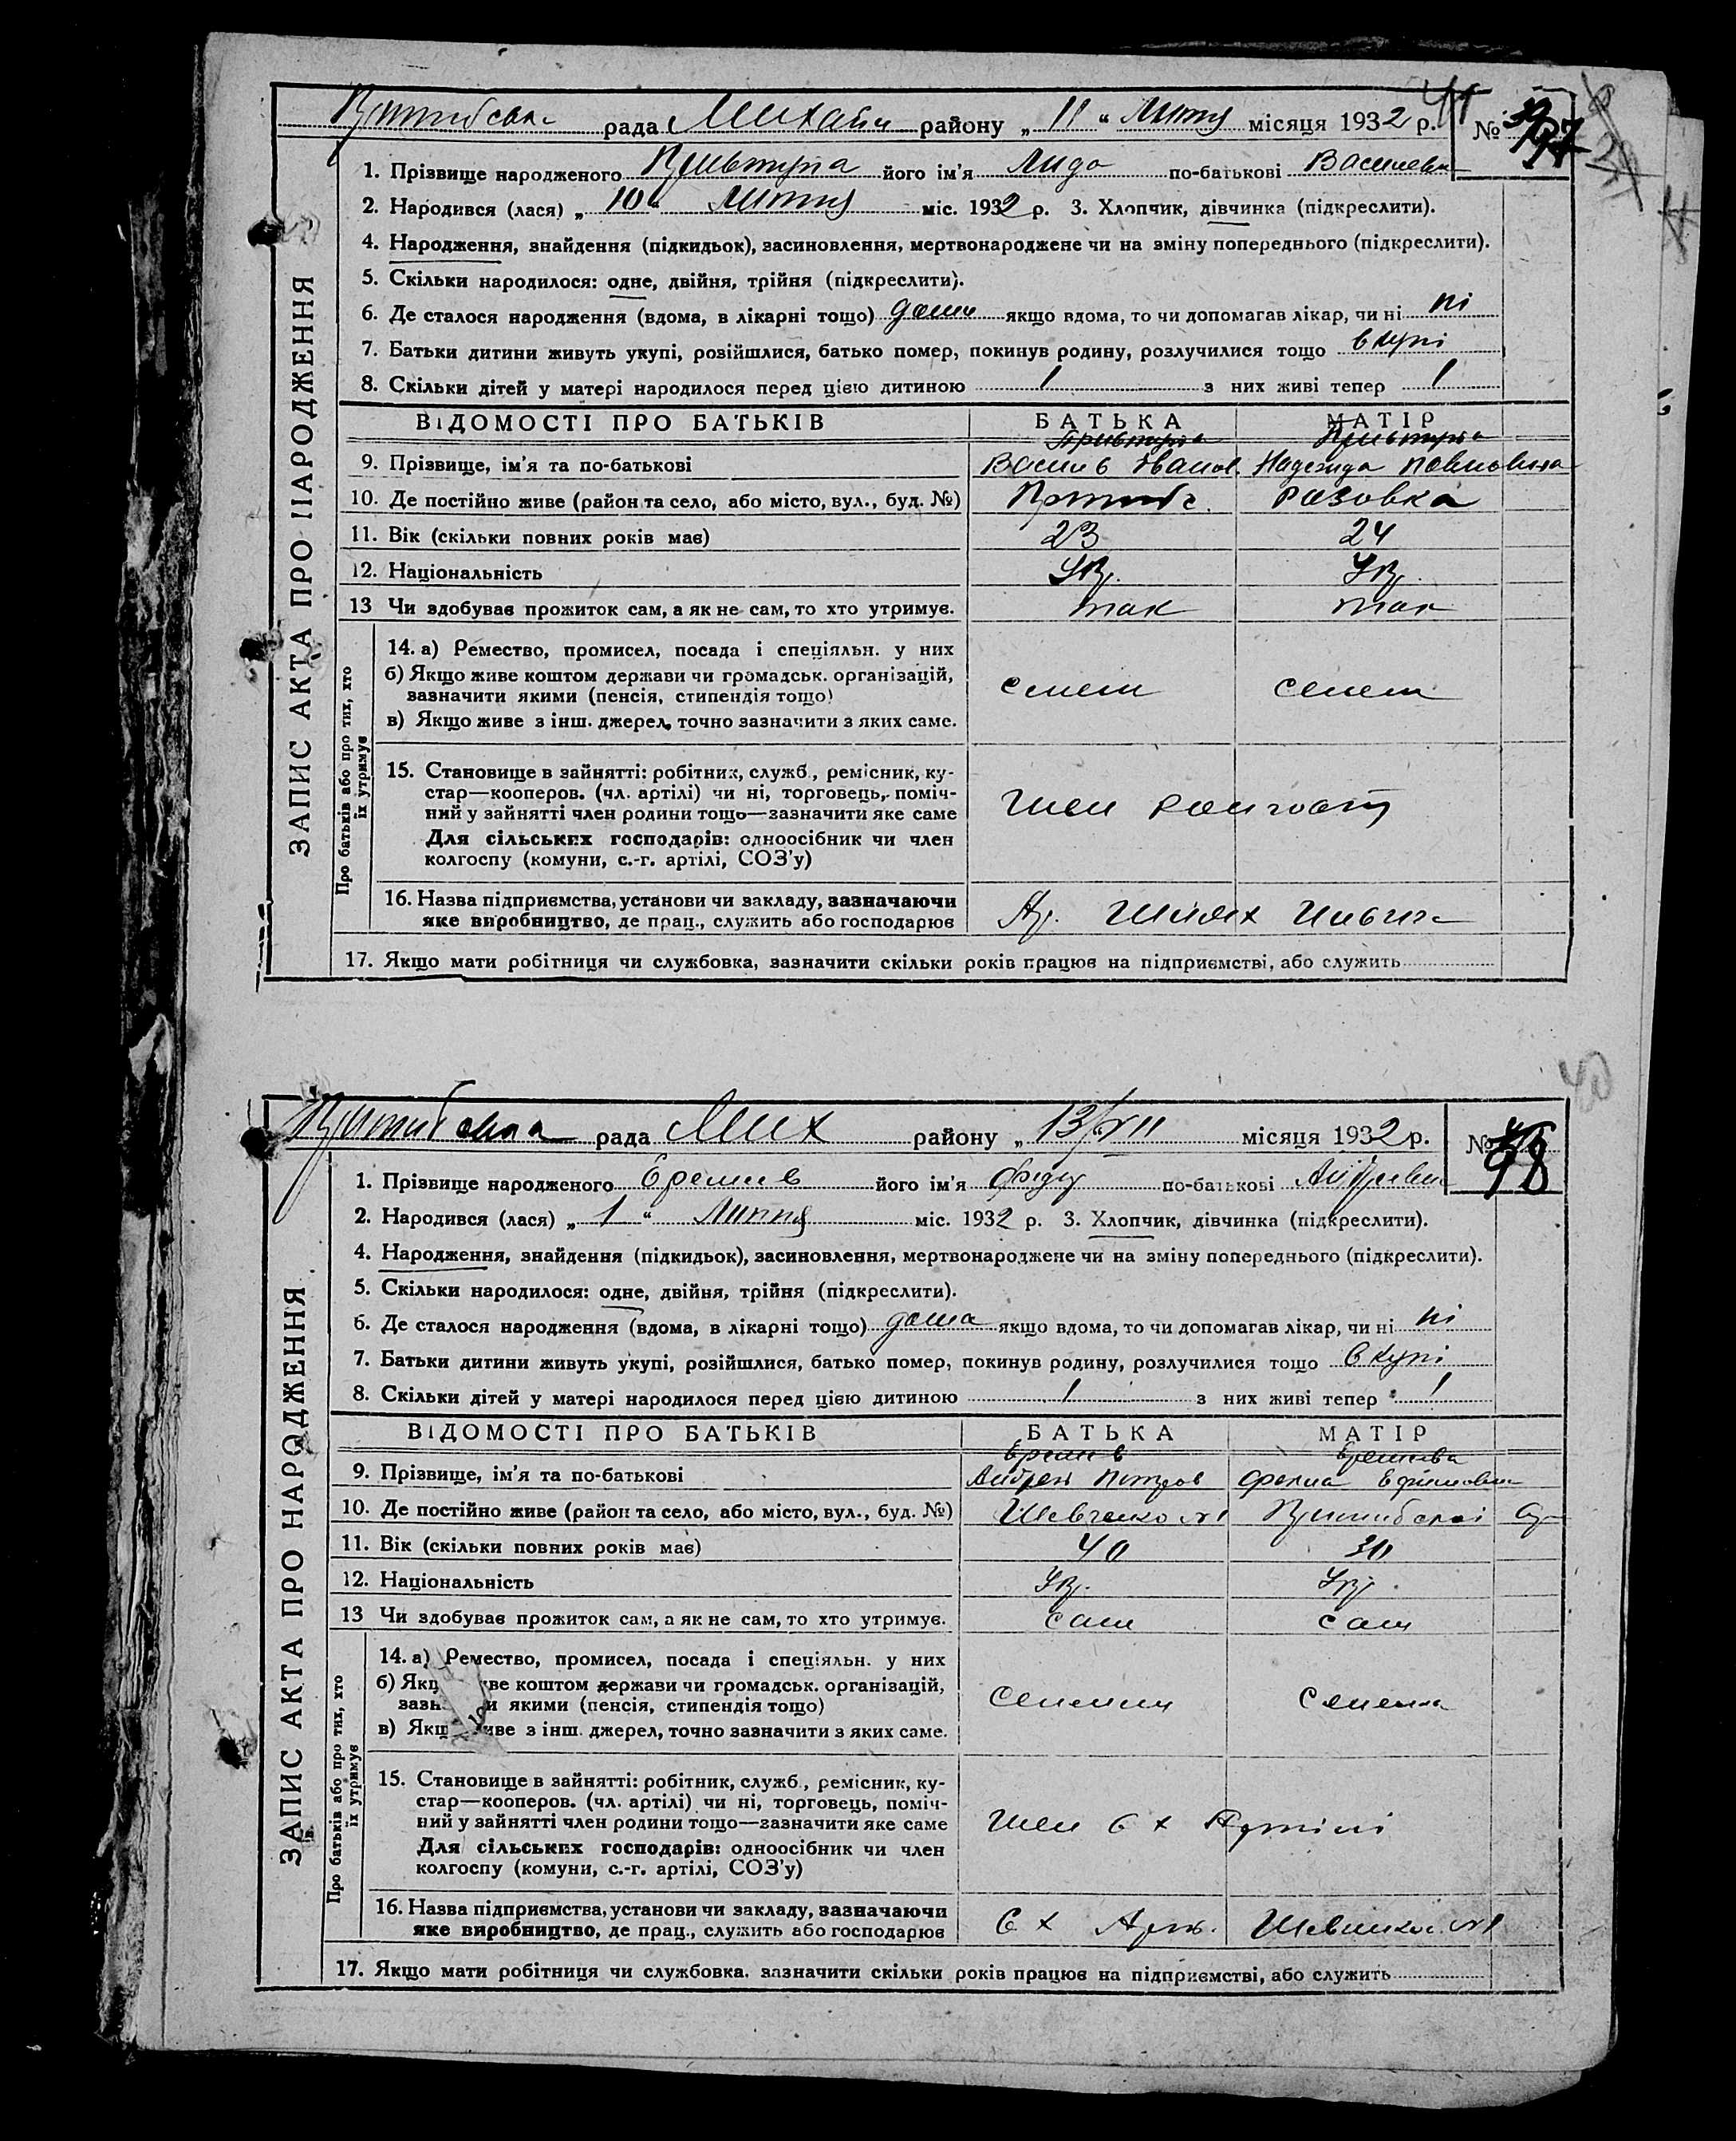 рада Михайл району „ 11 “ Липня місяця 1932 р. №
97
1. Прізвище народженого його ім'я Лида по-батькові Василевна
2. Народився (лася) „ 10 “ Липня міс. 1932 р. 3. Хлопчик, дівчинка (підкреслити).
4. Народження, знайдення (підкидьок), засиновлення, мертвонароджене чи на зміну попереднього (підкреслити).
5. Скільки народилося: одне, двійня, трійня (підкреслити).
6. Де сталося народження (вдома, в лікарні тощо) дома якщо вдома, то чи допомагав лікар, чи ні ні
7. Батьки дитини живуть укупі, розійшлися, батько помер, покинув родину, розлучилися тощо вкупі
8. Скільки дітей у матері народилося перед цією дитиною 1 з них живі тепер 1
ЗАПИС АКТА ПРО НАРОДЖЕННЯ
ВІДОМОСТІ ПРО БАТЬКІВ БАТЬКА МАТІР
9. Прізвище, ім'я та по-батькові Надежда Павловна
10. Де постійно живе (район та село, або місто, вул., буд. №) Розовка
11. Вік (скільки повних років має) 23 24
12. Національність Укр. Укр.
13 Чи здобуває прожиток сам, а як не сам, то хто утримує. так так
Про батьків або про тих, хто їх утримує
14. а) Ремество, промисел, посада і спеціяльн. у них
б) Якщо живе коштом держави чи громадськ. організацій,
зазначити якими (пенсія, стипендія тощо)
в) Якщо живе з інш. джерел, точно зазначити з яких саме.
15. Становище в зайнятті: робітник, служб., ремісник, ку-
стар—кооперов. (чл. артілі) чи ні, торговець, поміч-
ний у зайнятті член родини тощо—зазначити яке саме
Член
Для сільських господарів: одноосібник чи член
колгоспу (комуни, с.-г. артілі, СОЗ'у)
16. Назва підприємства, установи чи закладу, зазначаючи
яке виробництво, де прац., служить або господарює Шлях
17. Якщо мати робітниця чи службовка, зазначити скільки років працює на підприємстві, або служить
40
рада Мих району „ 13/VII місяця 1932 р. №
98
1. Прізвище народженого Єремів його ім'я по-батькові
2. Народився (лася) „ 1 “ Липня міс. 1932 р. 3. Хлопчик, дівчинка (підкреслити).
4. Народження, знайдення (підкидьок), засиновлення, мертвонароджене чи на зміну попереднього (підкреслити).
5. Скільки народилося: одне, двійня, трійня (підкреслити).
6. Де сталося народження (вдома, в лікарні тощо) дома якщо вдома, то чи допомагав лікар, чи ні ні
7. Батьки дитини живуть укупі, розійшлися, батько помер, покинув родину, розлучилися тощо вкупі
8. Скільки дітей у матері народилося перед цією дитиною 1 з них живі тепер 1
ЗАПИС АКТА ПРО НАРОДЖЕННЯ
ВІДОМОСТІ ПРО БАТЬКІВ БАТЬКА МАТІР
Єремів
9. Прізвище, ім'я та по-батькові Андрей Петров
10. Де постійно живе (район та село, або місто, вул., буд. №) Шевченко №1
11. Вік (скільки повних років має) 40 30
12. Національність Укр. Укр.
13 Чи здобуває прожиток сам, а як не сам, то хто утримує. сам сам
Про батьків або про тих, хто їх утримує
14. а) Ремество, промисел, посада і спеціяльн. у них
б) Якщ ве коштом держави чи громадськ. організацій,
зазн и якими (пенсія, стипендія тощо)
в) Якщ иве з інш. джерел, точно зазначити з яких саме.
15. Становище в зайнятті: робітник, служб., ремісник, ку-
стар—кооперов. (чл. артілі) чи ні, торговець, поміч-
ний у зайнятті член родини тощо—зазначити яке саме
Член С Х Артілі
Для сільських господарів: одноосібник чи член
колгоспу (комуни, с.-г. артілі, СОЗ'у)
16. Назва підприємства, установи чи закладу, зазначаючи
яке виробництво, де прац., служить або господарює С Х Арт. №1
17. Якщо мати робітниця чи службовка, зазначити скільки років працює на підприємстві, або служить